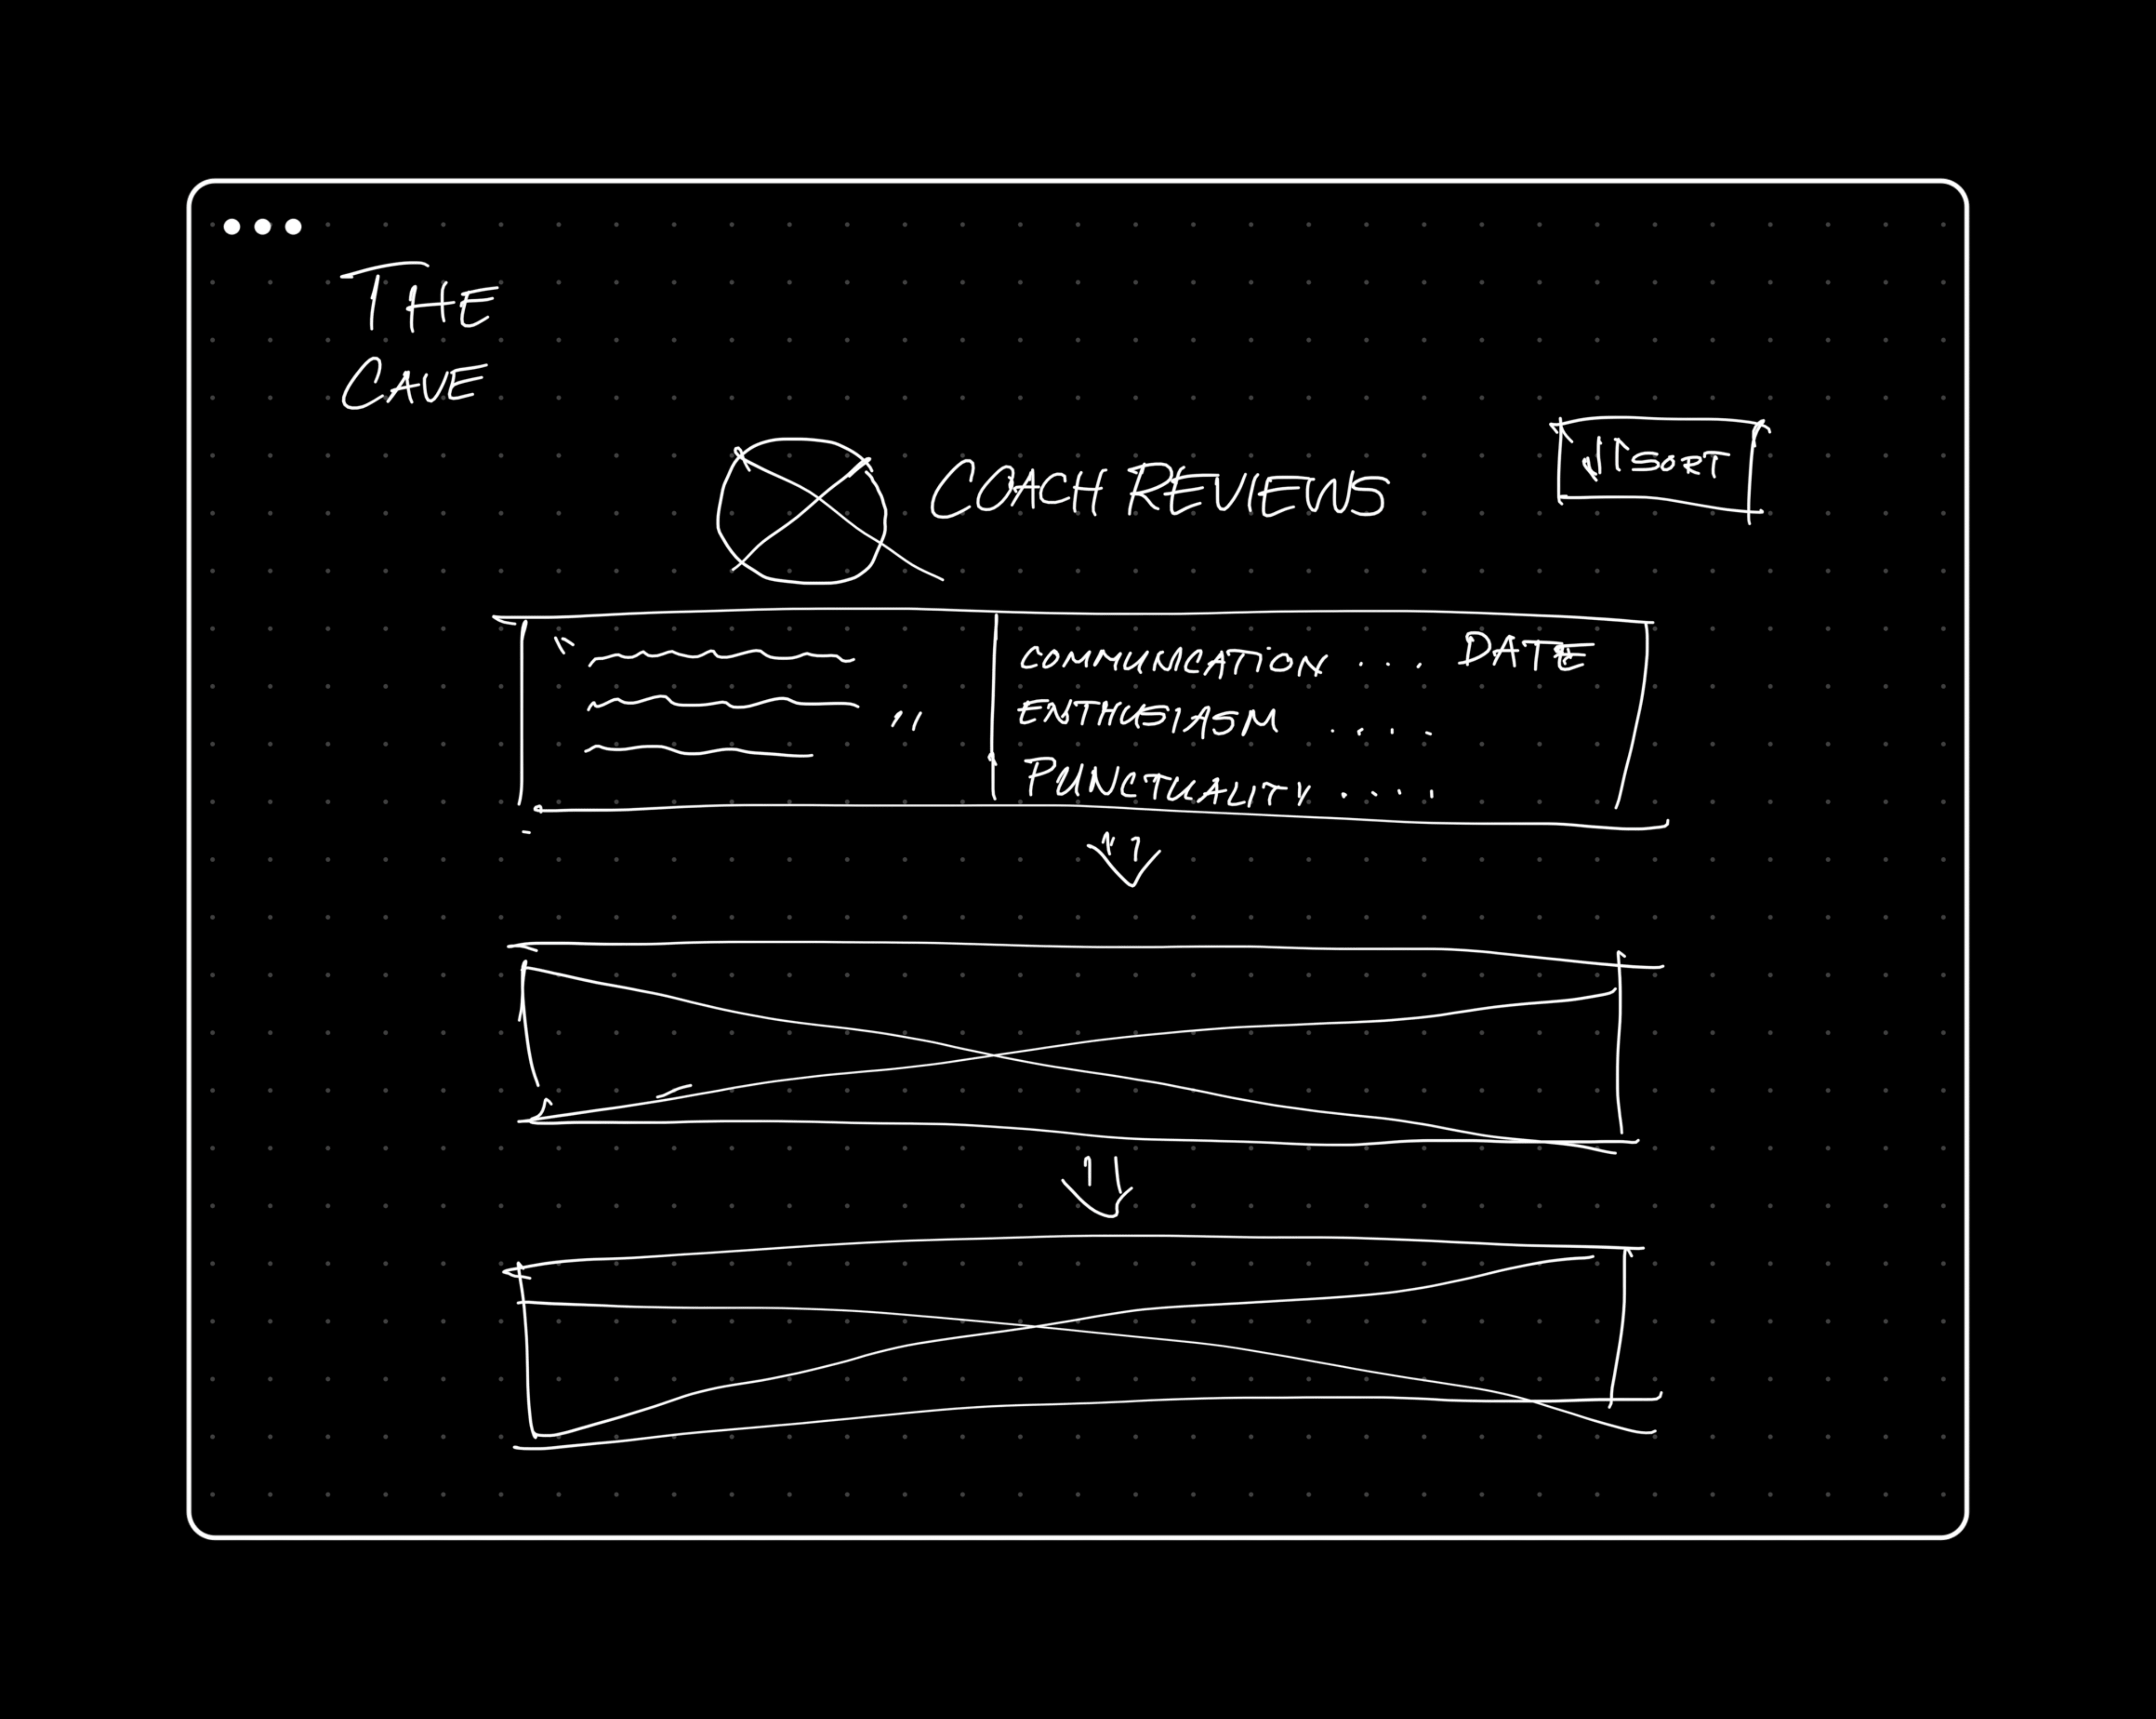 THE
CAVE
SORT
COACH REVIEWS
COMMUNICATION ... DATE
ENTHUSIASM ....
PUNCTUALITY ....